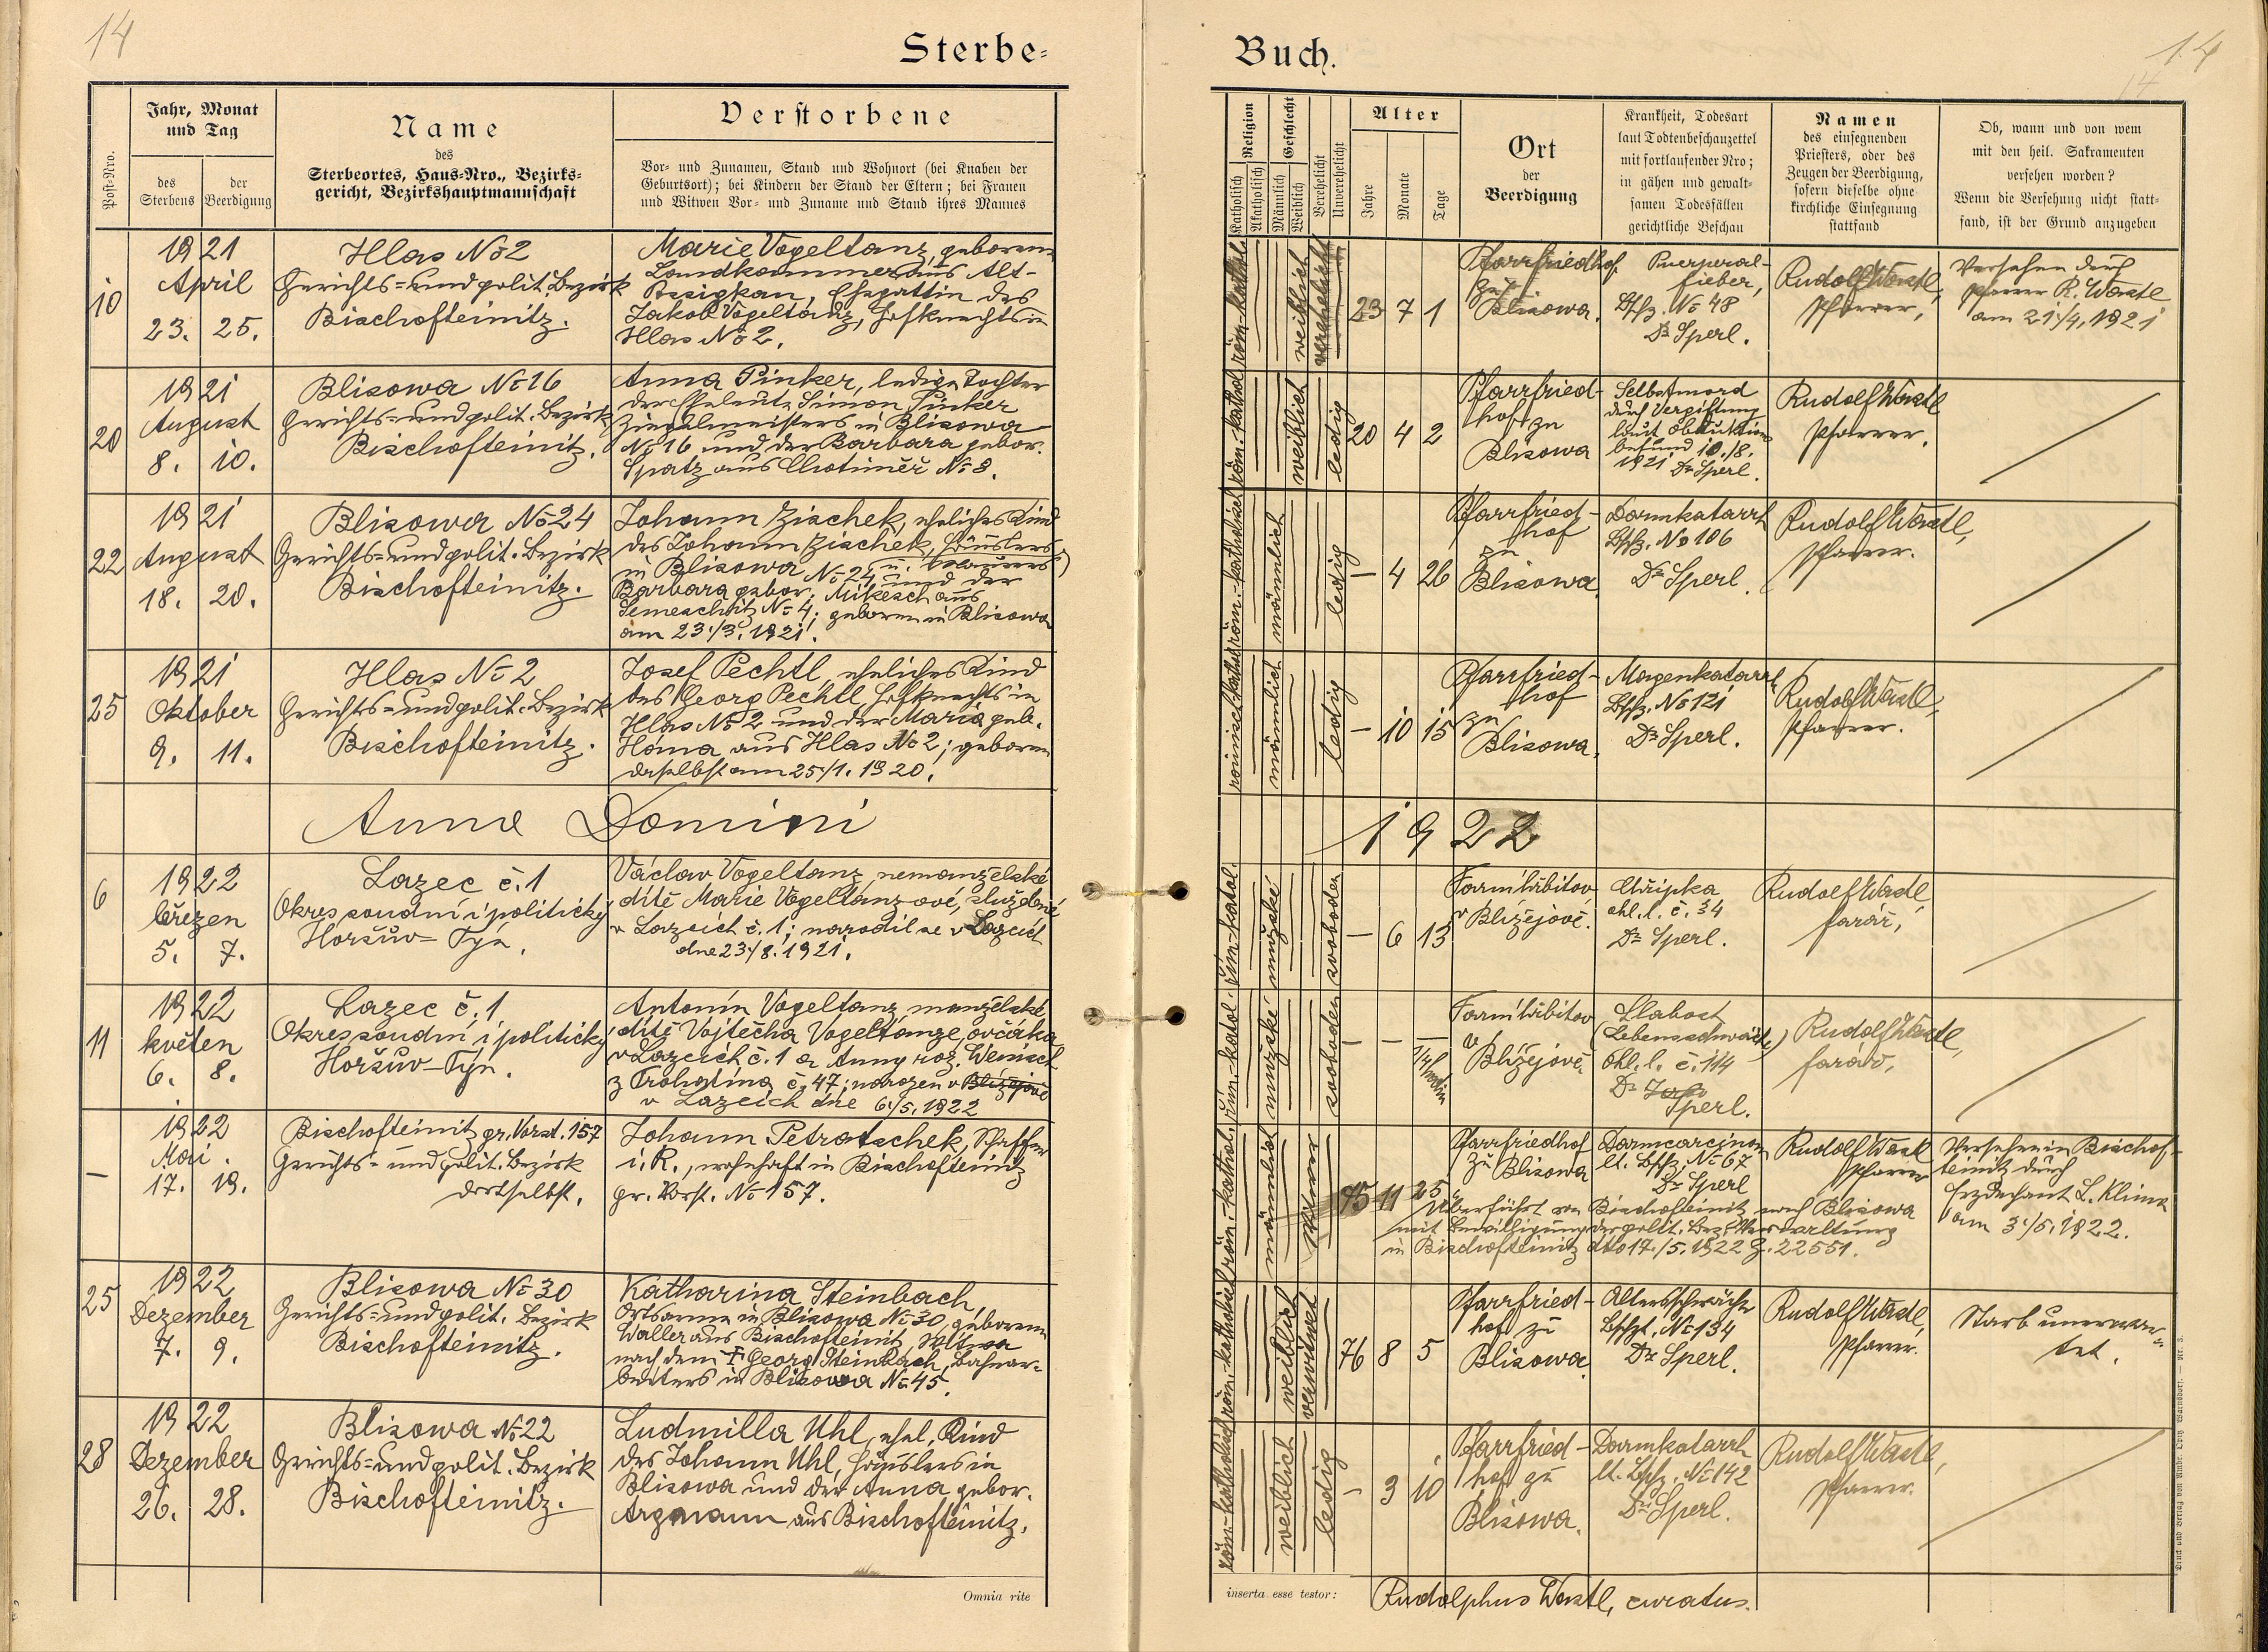 14
Sterbe-
Buch.
14
14
Post-Nro.
Jahr, Monat
und Tag
des
Sterbens
der
Beerdigung
Name
des
Sterbeortes, Haus-Nro., Bezirks-
gericht, Bezirkshauptmannschaft
Verstorbene
Vor- und Zunamen, Stand und Wohnort (bei Knaben der
Geburtsort); bei Kindern der Stand der Eltern; bei Frauen
und Witwen Vor- und Zuname und Stand ihres Mannes
Religion
Katholisch
Akatholisch
Geschlecht
Männlich
Weiblich
Verehelicht
Unverehelicht
Alter
Jahre
Monate
Tage
Ort
der
Beerdigung
Krankheit, Todesart
laut Todtenbeschauzettel
mit fortlaufender Nro;
in gähen und gewalt-
samen Todesfällen
gerichtliche Beschau
Namen
des einsegnenden
Priesters, oder des
Zeugen der Beerdigung,
sofern dieselbe ohne
kirchliche Einsegnung
stattfand
Ob, wann und von wem
mit den heil. Sakramenten
versehen worden?
Wenn die Versehung nicht statt-
fand, ist der Grund anzugeben
10
1921
April
23. 25.
Hlas No 2
Gerichts- und polit. Bezirk
Bischofteinitz.
Marie Vogeltanz, geborene
Landkammer aus Alt-
Ehegattin des
Jakob Vogeltanz, Hofknechts in
Hlas No 2.
röm. kathol.
weiblich
verehelicht
23 7 1
Pfarrfriedhof
zu
Blisowa.
Puerperal-
fieber,
Bschz. No 48
Dr Sperl.
Rudolf Wastl,
Pfarrer,
Versehen durch
Pfarrer R. Wastl
am 21./4. 1921
20
1921
August
8. 10.
Blisowa No 16
Gerichts- und polit. Bezirk
Bischofteinitz.
Anna Pinker, ledige Tochter
der Eheleute Simon Pinker
Ziegelmeisters in Blisowa
No 16 und der Barbara gebor.
Spatz aus Chotiměř No 8.
röm. kathol.
weiblich
ledig
20 4 2
Pfarrfried-
hof zu
Blisowa
Selbstmord
durch Vergiftung
laut Obduktions-
befund 10./8.
1921 Dr Sperl.
Rudolf Wastl
Pfarrer.
22
1921
August
18. 20.
Blisowa No 24
Gerichts- und polit. Bezirk
Bischofteinitz.
Johann Zischek, eheliches Kind
des Johann Zischek, Häuslers
in Blisowa No 24, und der
Barbara gebor. Mikesch aus
Semeschitz No 4; geboren in Blisowa
am 23./3. 1921.
röm. katholisch
männlich
ledig
— 4 26
Pfarrfried-
hof
zu
Blisowa
Darmkatarrh
Bschz. No 106
Dr Sperl.
Rudolf Wastl,
Pfarrer.
25
1921
Oktober
9. 11.
Hlas No 2
Gerichts- und polit. Bezirk
Bischofteinitz.
Josef Pechtl, eheliches Kind
des Georg Pechtl, Hofknechts in
Hlas No 2 und der Maria geb.
Homa aus Hlas No 2; geboren
daselbst am 25./1. 1920.
römisch kathol.
männlich
ledig
— 10 15
Pfarrfried-
hof
zu
Blisowa.
Magenkatarrh
Bschz. No 121
Dr Sperl.
Rudolf Wastl,
Pfarrer.
Anno Domini
1922
6
1922
březen
5. 7.
Lazec č. 1
Okres soudní i politický
Horšův-Týn.
Václav Vogeltanz, nemanželské
dítě Marie Vogeltanzové, služebné
v Lazcích č. 1; narodil se v Lazcích
dne 23./8. 1921.
řím.-katol.
mužské
svoboden
— 6 13
Farní hřbitov
v Blížejově.
Chřipka
ohl. l. č. 34
Dr Sperl.
Rudolf Wastl,
farář,
11
1922
květen
6. 8.
Lazec č. 1
Okres soudní i politický
Horšův-Týn.
Antonín Vogeltanz, manželské
dítě Vojtěcha Vogeltanze, ovčáka
v Lazcích č. 1 a Anny roz. Wenisch
z Trohatína č. 47; narozen v Blížejově
v Lazcích dne 6./5. 1922
řím.-katol.
mužské
svoboden
— —
Farní hřbitov
v
Blížejově.
Slabost
(Lebensschwäche)
ohl. l. č. 114
Dr
Sperl.
Rudolf Wastl,
farář,
—
1922
Mai.
17. 19.
Bischofteinitz gr. Vorst. 157
Gerichts- und polit. Bezirk
dortselbst.
Johann Petratschek, Schaffer
i. R., wohnhaft in Bischofteinitz
gr. Vorst. No 157.
röm. kathol.
männlich
Witwer
75 11 25
Pfarrfriedhof
zu Blisowa
Darmcarcinom
lt. Bschz. No 67
Dr Sperl
Rudolf Wastl
Pfarrer
Versehen in Bischof-
teinitz durch
Erzdechant L. Klima
am 3./5. 1922.
Überführt von Bischofteinitz nach Blisowa
mit Bewilligung der polit. Bez. Verwaltung
in Bischofteinitz dto 17./5. 1922 Z. 22551.
25
1922
Dezember
7. 9.
Blisowa No 30
Gerichts- und polit. Bezirk
Bischofteinitz.
Katharina Steinbach,
Ortsarme in Blisowa No 30, geborene
Waller aus Bischofteinitz, Witwe
nach dem † Georg Steinbach, Bahnar-
beiters in Blisowa No 45.
röm. katholisch
weiblich
verwitwet
76 8 5
Pfarrfried-
hof zu
Blisowa
Altersschwäche
Bschzt. No 134
Dr Sperl.
Rudolf Wastl,
Pfarrer.
Starb unerwar-
tet.
28
1922
Dezember
26. 28.
Blisowa No 22
Gerichts- und polit. Bezirk
Bischofteinitz.
Ludmilla Uhl, ehel. Kind
des Johann Uhl, Häuslers in
Blisowa und der Anna gebor.
Arzmann aus Bischofteinitz.
röm. katholisch
weiblich
ledig
— 3 10
Pfarrfried-
hof zu
Blisowa.
Darmkatarrh
lt. Bschz. No 142
Dr Sperl.
Rudolf Wastl,
Pfarrer.
Omnia rite
inserta esse testor:
Rudolphus Wastl, curatus.